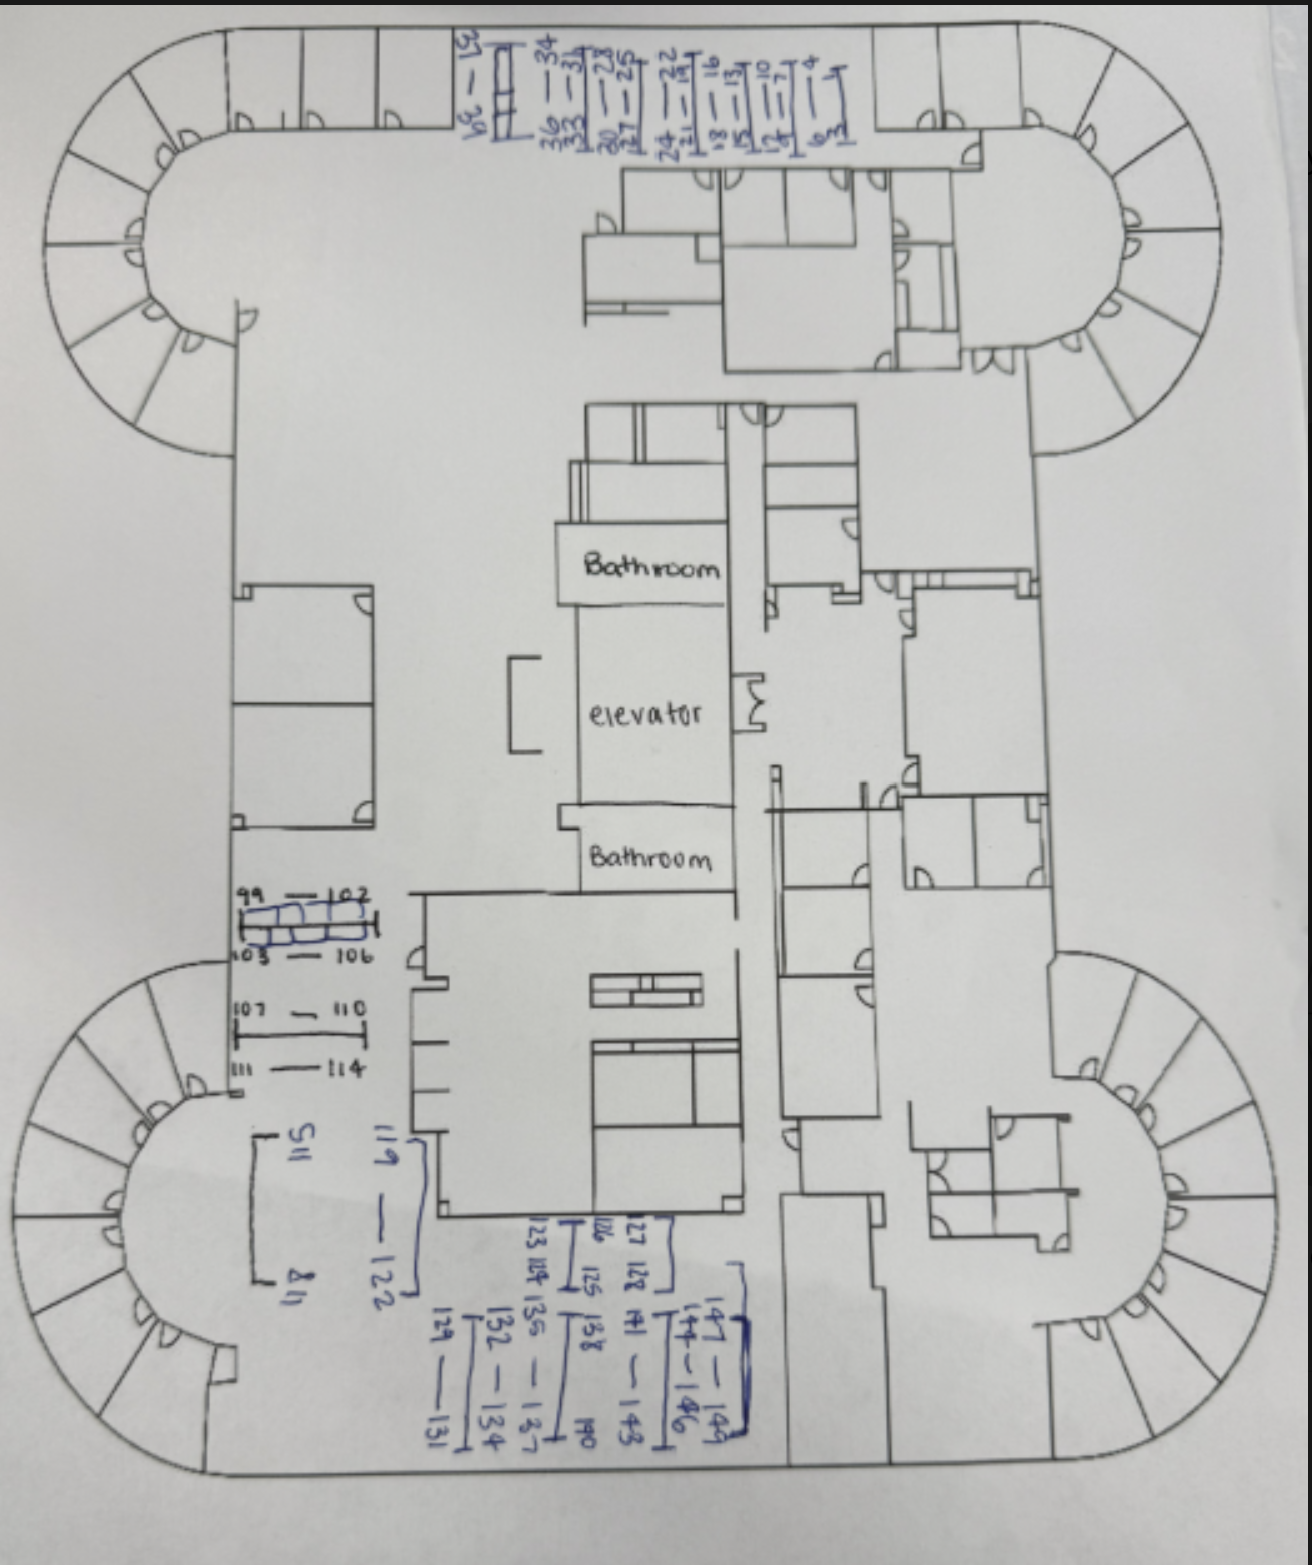 37 — 39
36 — 34
33 — 31
30 — 28
27 — 25
24 — 22
21 — 19
18 — 16
15 — 13
12 — 10
9 — 7
6 — 4
3 — 1
Bathroom
elevator
Bathroom
99 — 102
103 — 106
107 — 110
111 — 114
115
118
119 — 122
123 124
126 125
127 128
129 — 131
132 — 134
135 — 137
138 140
141 — 143
144 — 146
147 — 149